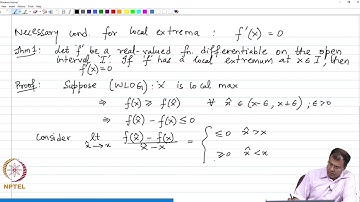 Necessary cond. for local extrema : f'(x) = 0
Thm1: Let f be a real-valued fn. differentiable on the open
interval 'I'. If f has a local extremum at x∈I, then
f'(x)=0
Proof: Suppose (WLOG) : x is local max
⇒ f(x) ≥ f(x̂) ∀ x̂ ∈ (x-ε, x+ε) ; ε>0
⇒ f(x̂) - f(x) ≤ 0
Consider lt x̂→x f(x̂) - f(x) / x̂ - x = { ≤ 0 x̂ > x
≥ 0 x̂ < x
NPTEL